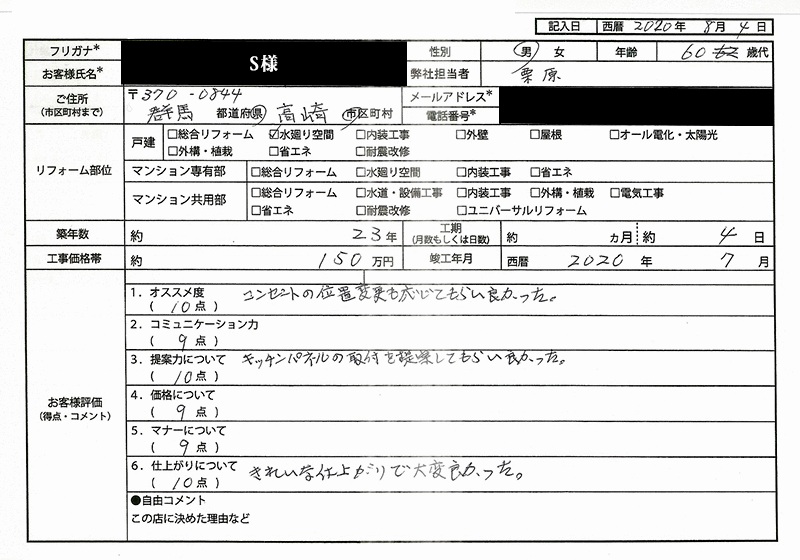 記入日 西暦 2020年 8月 4日
フリガナ* S様 性別 男 女 年齢 60 歳代
お客様氏名* 弊社担当者 栗原
ご住所 (市区町村まで) 〒370-0844 メールアドレス*
群馬 都道府県 高崎 市区町村 電話番号*
リフォーム部位
戸建 □総合リフォーム ☑水廻り空間 □内装工事 □外壁 □屋根 □オール電化・太陽光
□外構・植栽 □省エネ □耐震改修
マンション専有部 □総合リフォーム □水廻り空間 □内装工事 □省エネ
マンション共用部 □総合リフォーム □水道・設備工事 □内装工事 □外構・植栽 □電気工事
□省エネ □耐震改修 □ユニバーサルリフォーム
築年数 約 23年 工期 (月数もしくは日数) 約 ヵ月 約 4日
工事価格帯 約 150万円 竣工年月 西暦 2020年 7月
お客様評価 (得点・コメント)
1. オススメ度 コンセントの位置変更も応じてもらい良かった。
( 10点 )
2. コミュニケーション力
( 9点 )
3. 提案力について キッチンパネルの取付を提案してもらい良かった。
( 10点 )
4. 価格について
( 9点 )
5. マナーについて
( 9点 )
6. 仕上がりについて きれいな仕上がりで大変良かった。
( 10点 )
●自由コメント
この店に決めた理由など